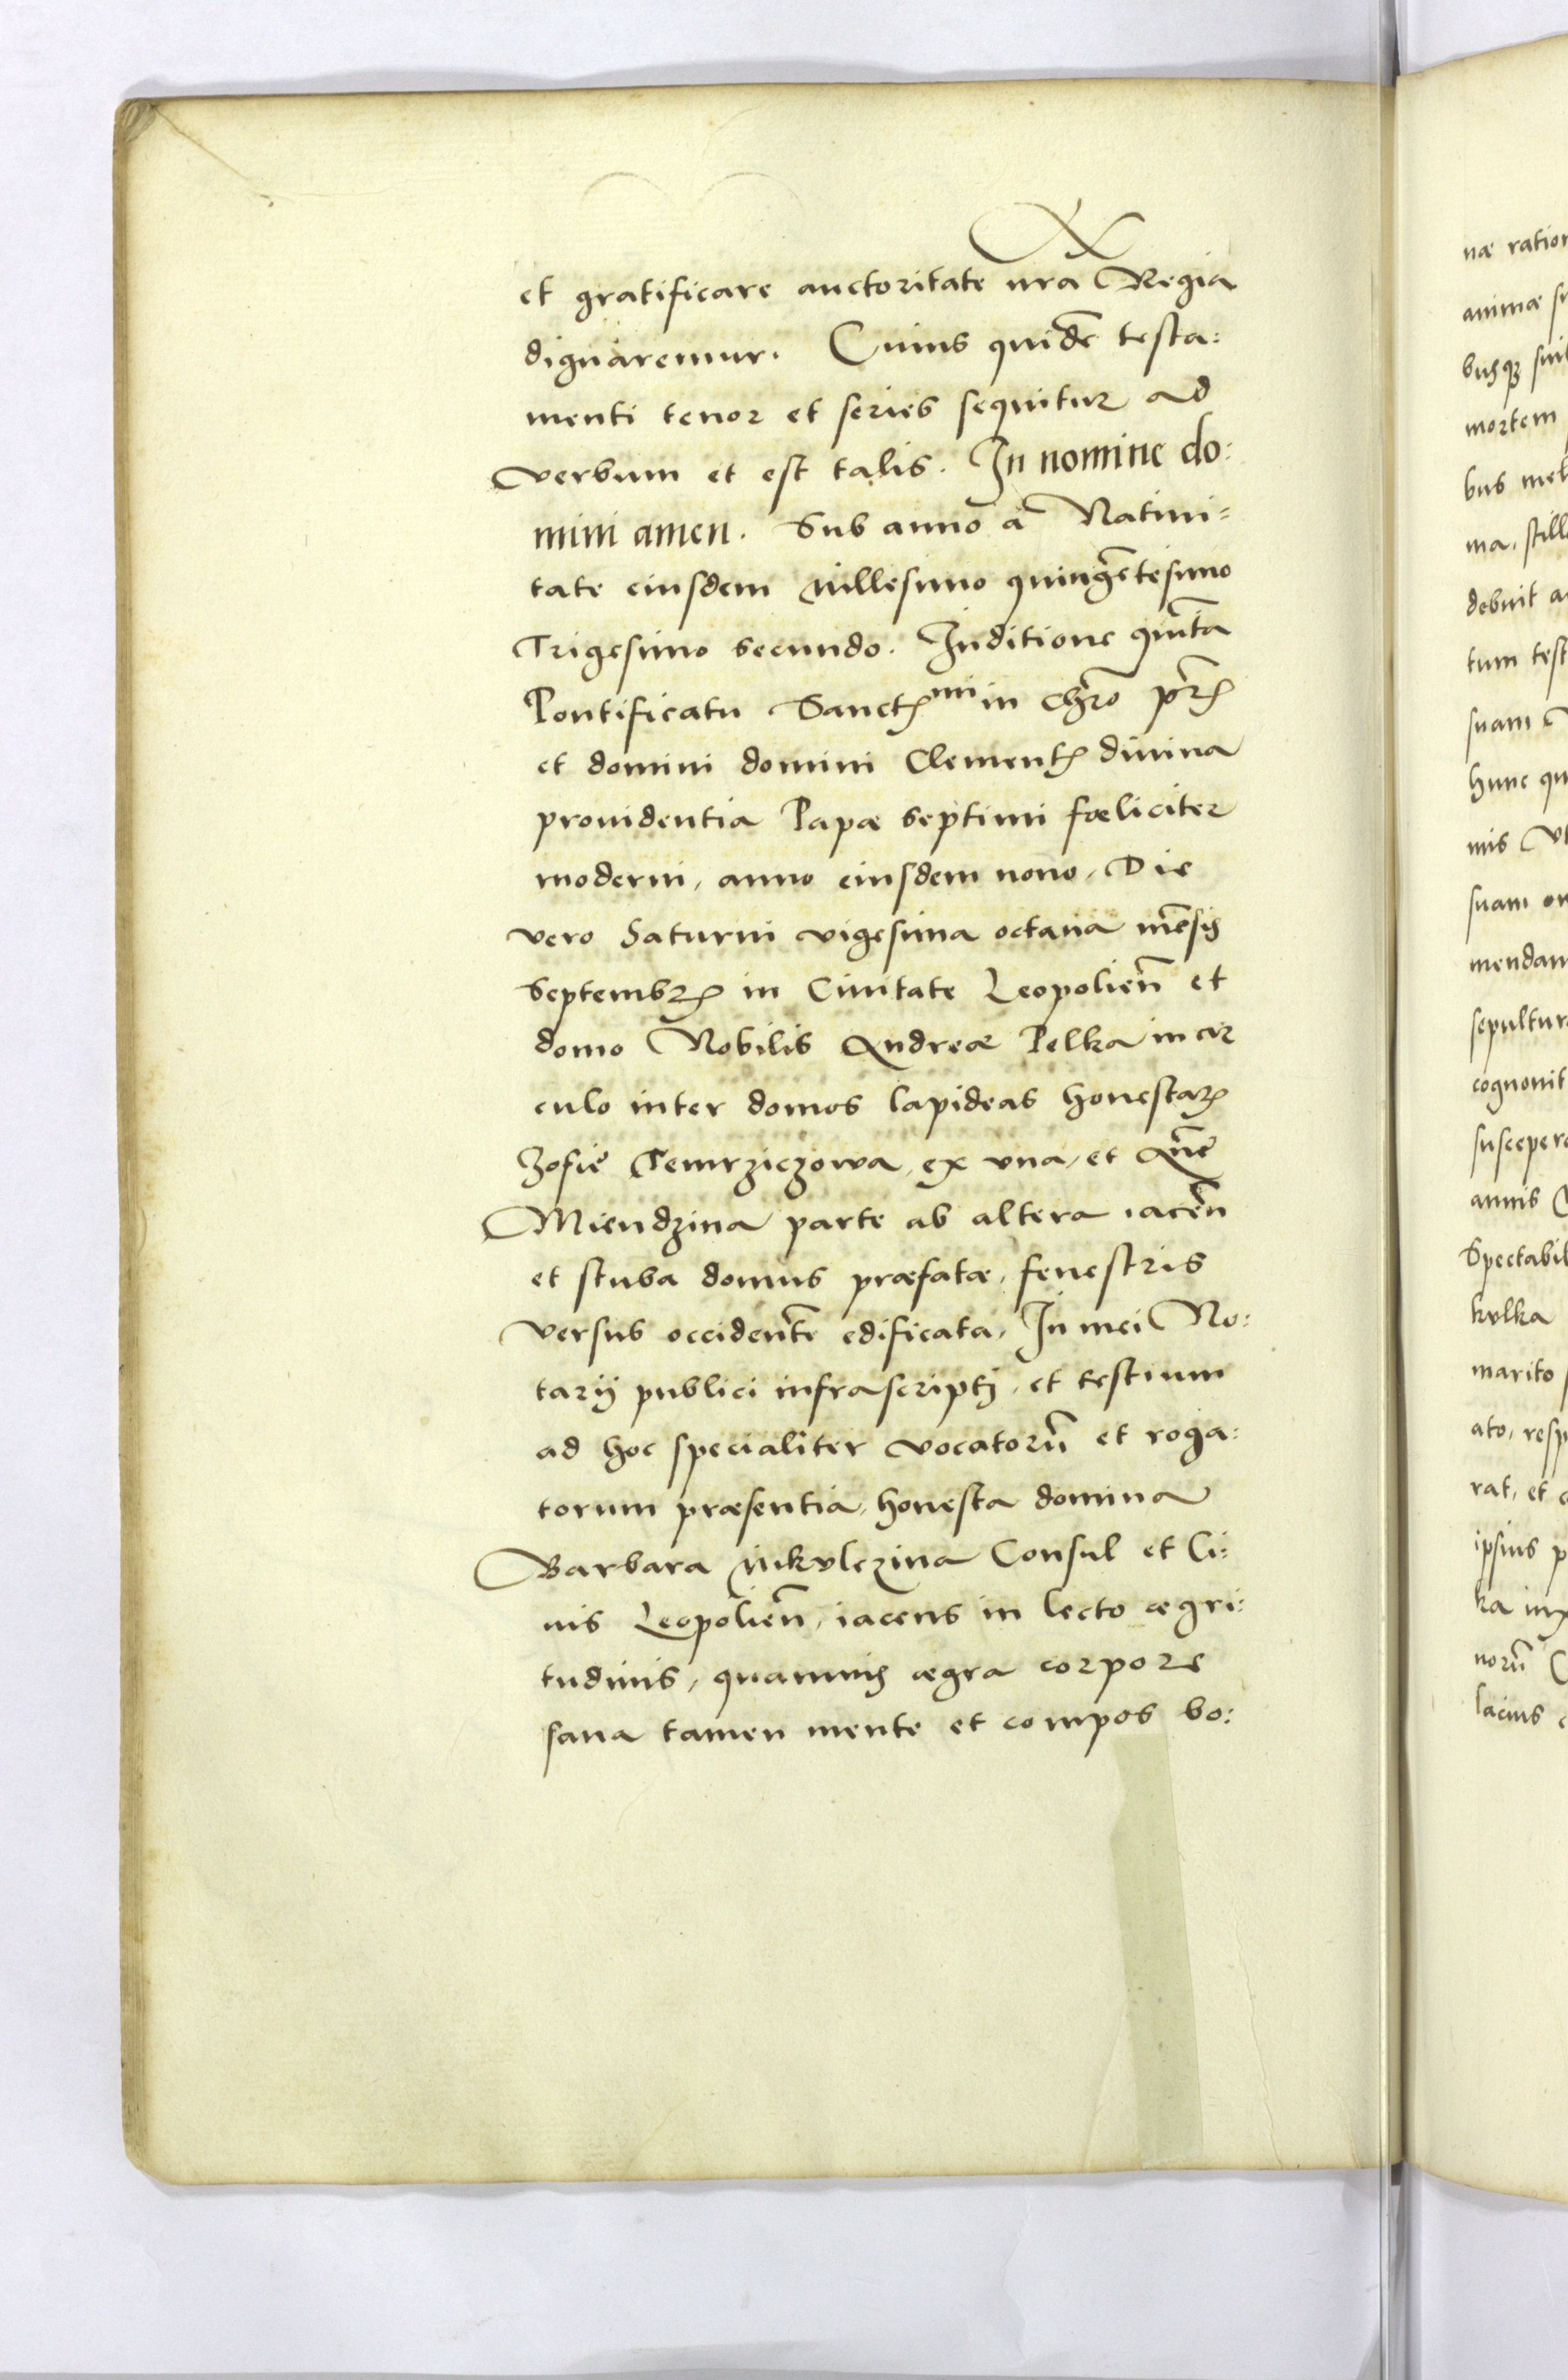 et gratificare auctoritate nr̃a Regia
dignaremur. Cuius quidẽ testa:
menti tenor et series sequitur ad
verbum et est talis. In nomine do:
mini amen. Sub anno à Natiui=
tate eiusdem millesimo quingẽtesimo
Trigesimo secundo. Inditione quĩta
Pontificatu Sanctꝭmi in chr̃o pr̃ꝭ
et domini domini Clementꝭ diuina
prouidentia Papæ septimi fœliciter
moderni, anno eiusdem nono, Die
vero Saturni vigesima octaua mẽsis
septembrꝭ in Ciuitate Leopolieñ et
domo Nobilis Andreæ Pelka in cir
culo inter domos lapideas honestarꝭ
Zofie Temrziczowa, ex vna, et Añe
Miendzina parte ab altera iaceñ
et stuba domus præfatæ, fenestris
versus occidentẽ edificata, In mei No:
tarij publici infrascripti, et testium
ad hoc specialiter vocatorũ et roga:
torum præsentia, honesta domina
Barbara mikulczina Consul et Ci:
uis Leopolieñ, iacens in lecto ægri:
tudinis, quamuis ægra corpore
sana tamen mente et compos bo:
næ ration
animæ
busqꝫ
mortem
bus
ma, still
debuit
tum test
suam
hunc qu
mis
suam
mendam
sepultur
cognouit
suscepere
annis
Spectabil
kulka
marito
ato, resp
rat, et
ipsius p
ka
norũ
lacius